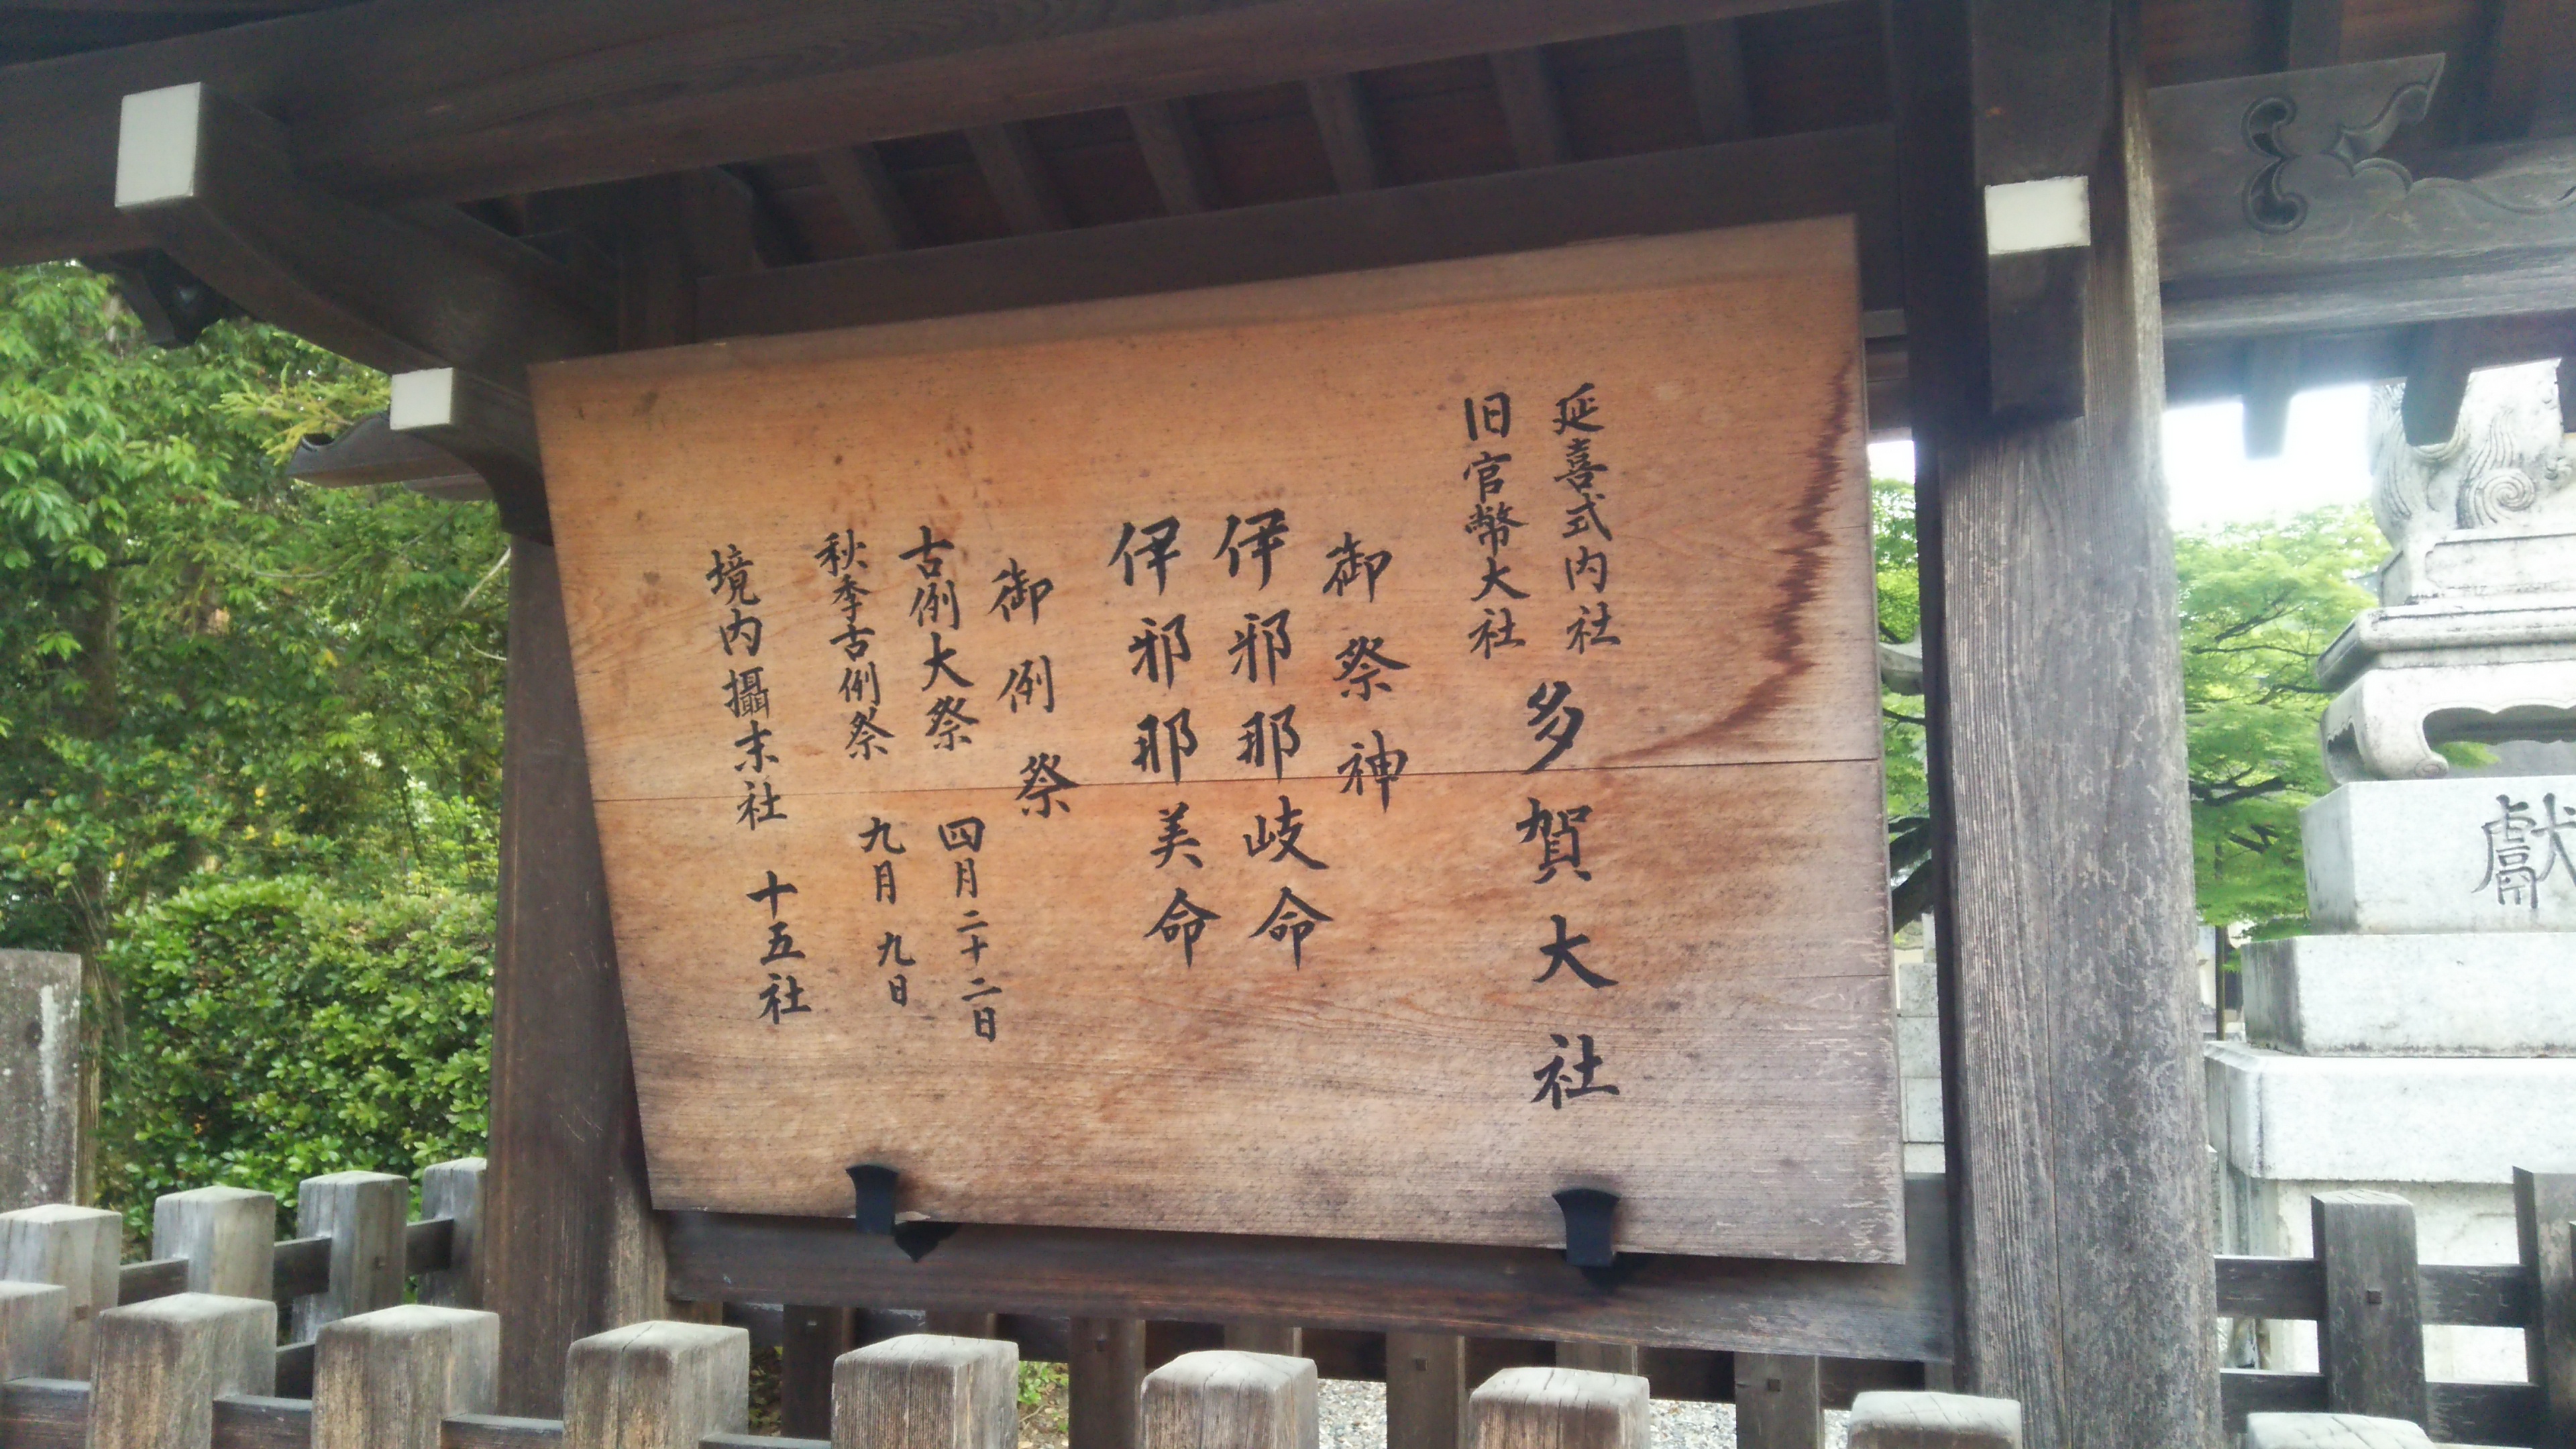 延喜式内社
旧官幣大社
多賀大社
御祭神
伊邪那岐命
伊邪那美命
御例祭
古例大祭 四月二十二日
秋季古例祭 九月九日
境内攝末社 十五社
献